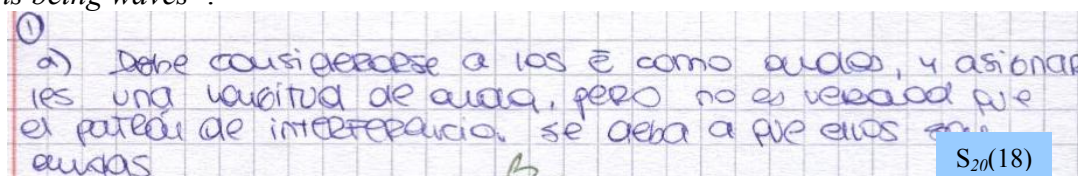 is being waves".
①
a) Debe considerarse a los ē como ondas, y asignar
les una longitud de onda, pero no es verdad que
el patrón de interferencia se deba a que ellos son
ondas
S20(18)